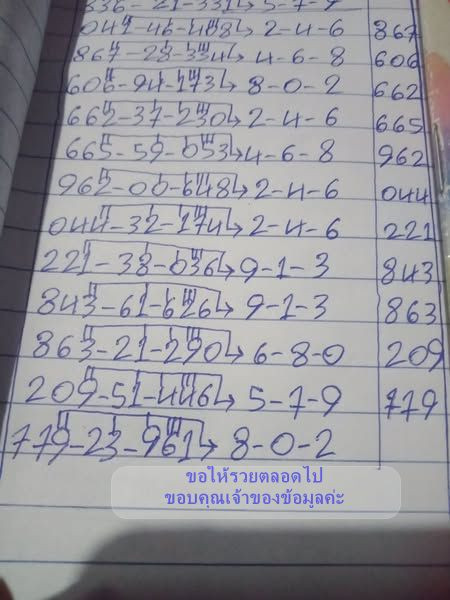 336-21-331→5-7-9
041-46-448→2-4-6 867
867-28-334→4-6-8 606
606-94-173→8-0-2 662
662-37-230→2-4-6 665
665-59-053→4-6-8 962
962-00-648→2-4-6 044
044-32-174→2-4-6 221
221-38-036→9-1-3 843
843-61-626→9-1-3 863
863-21-290→6-8-0 209
209-51-446→5-7-9 779
779-23-961→8-0-2
ขอให้รวยตลอดไป
ขอบคุณเจ้าของข้อมูลค่ะ